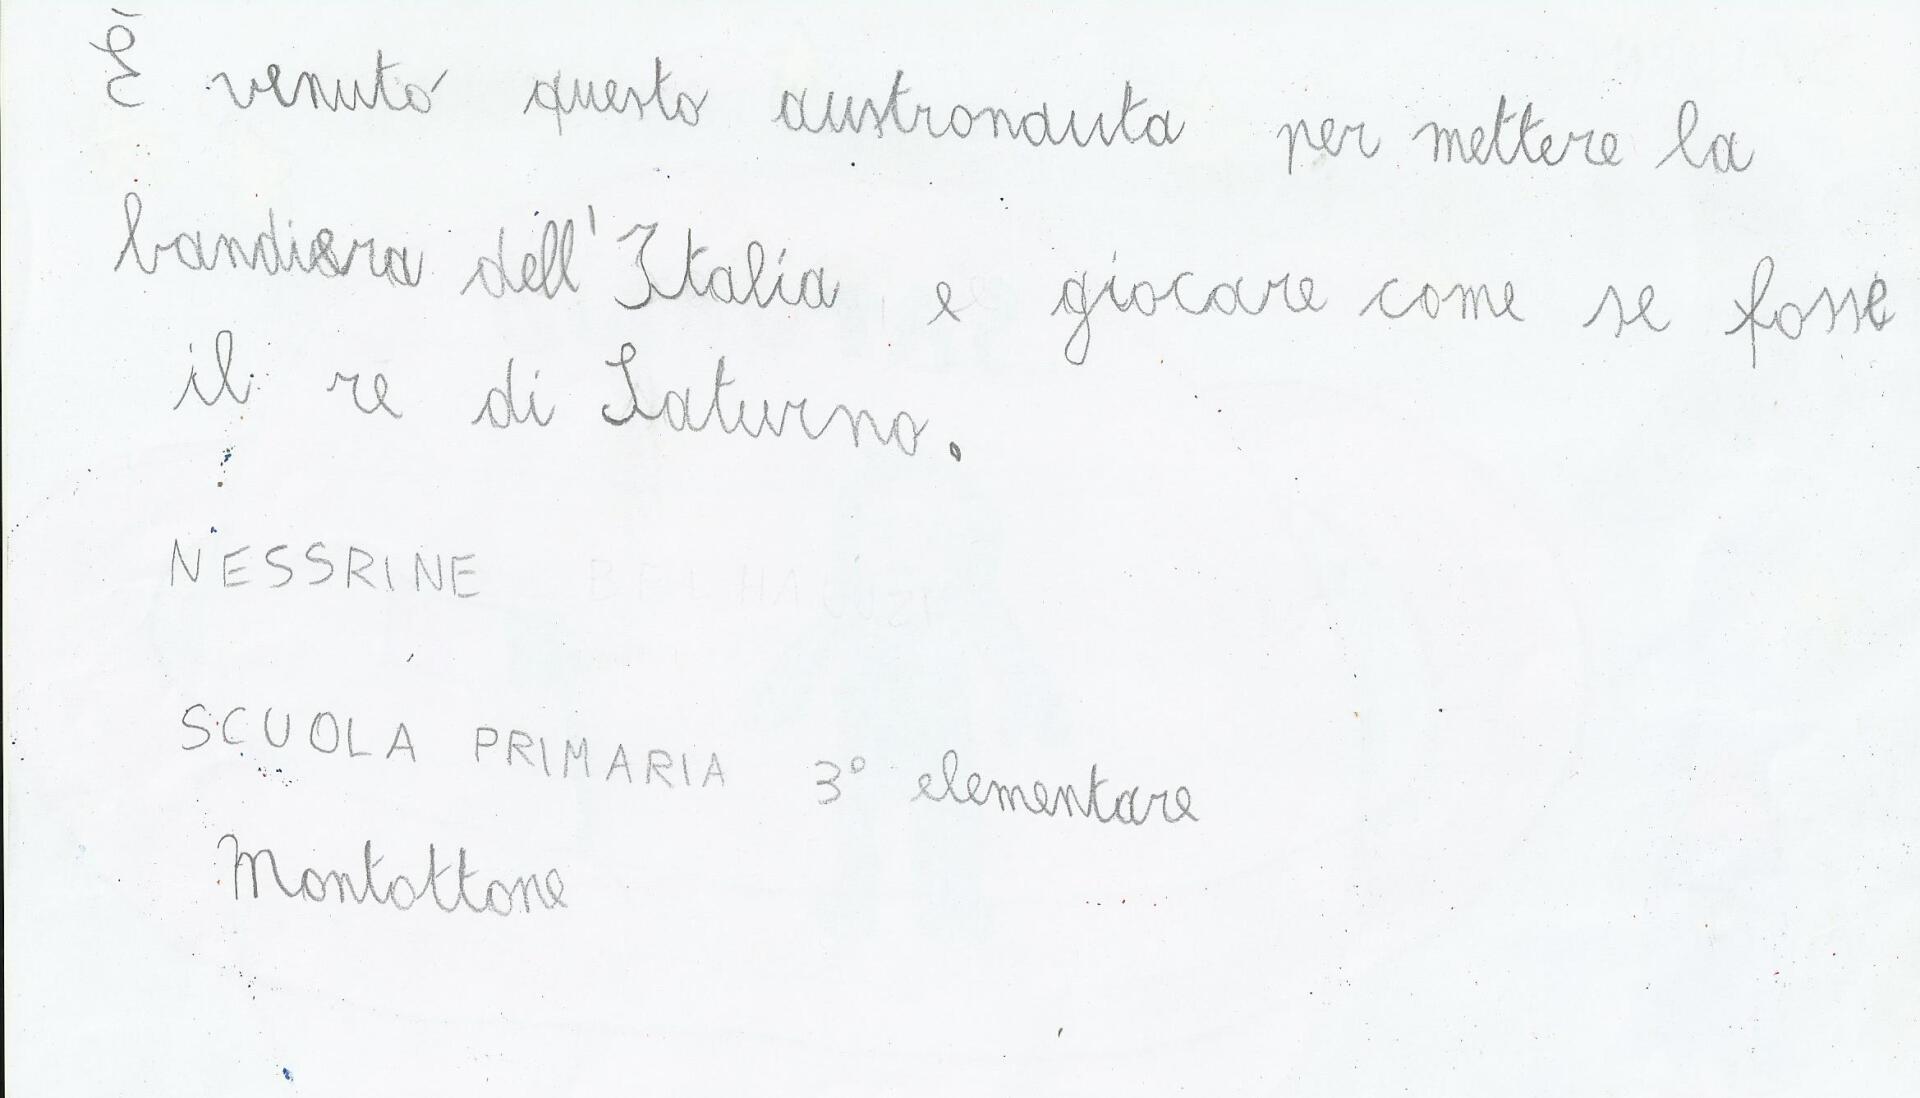 È venuto questo austronauta per mettere la
bandiera dell'Italia e giocare come se fosse
il re di Saturno.
NESSRINE
SCUOLA PRIMARIA 3° elementare
Montottone